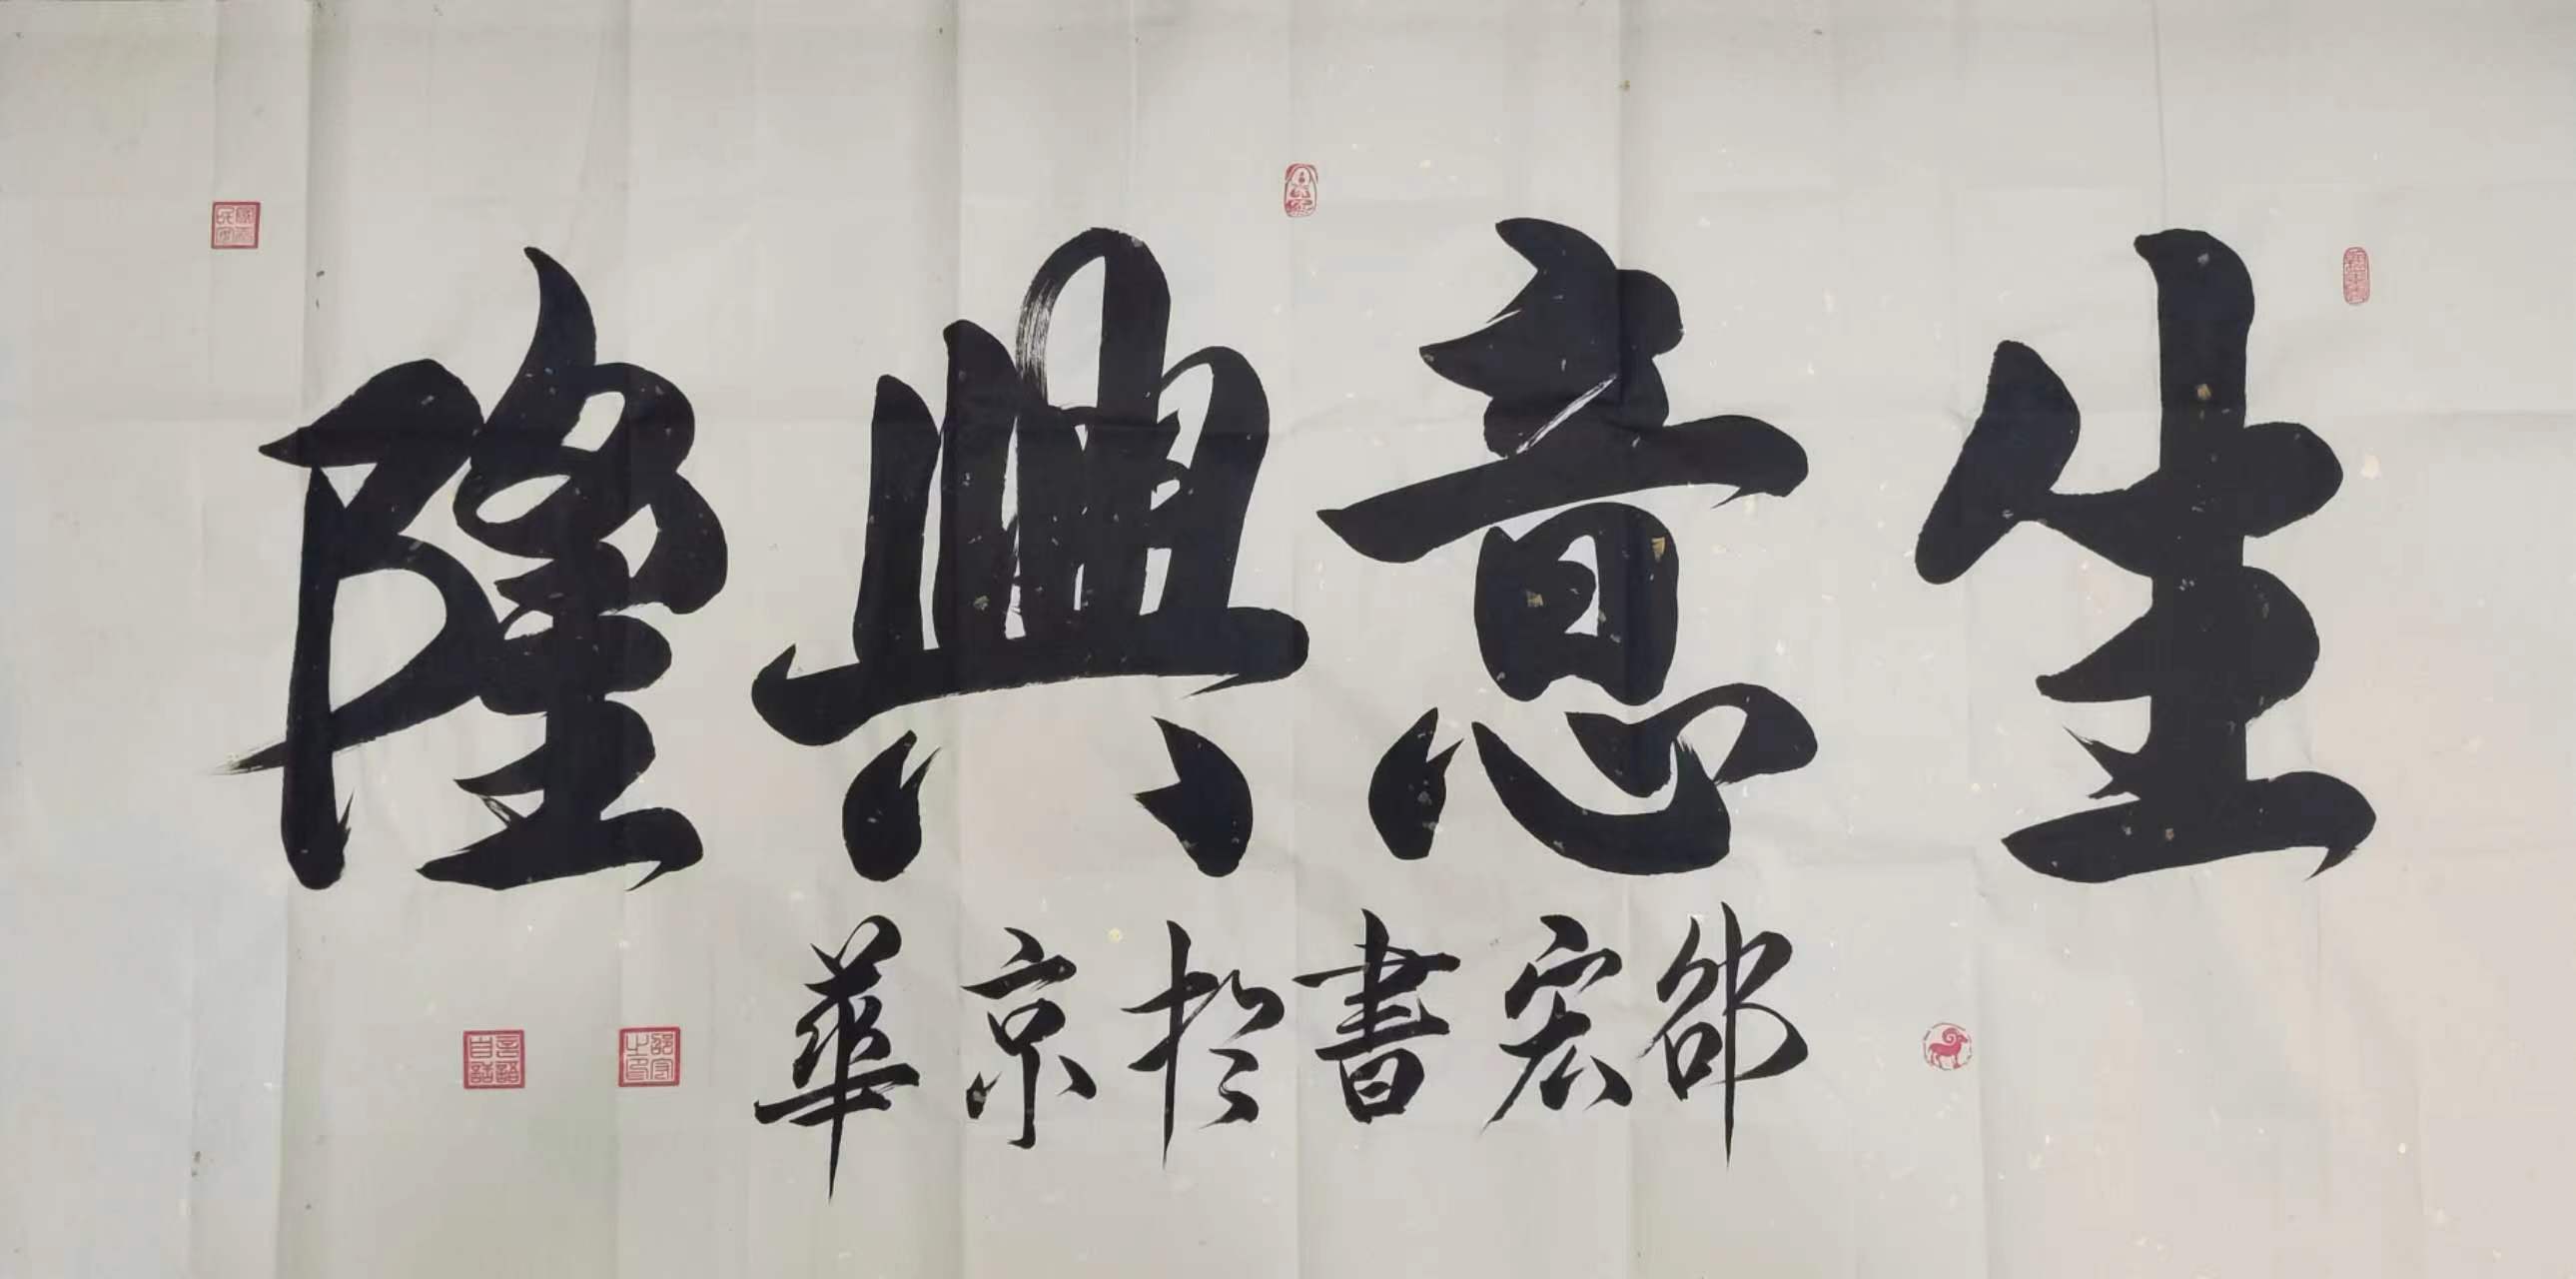 生意興隆
邵宏書於京華